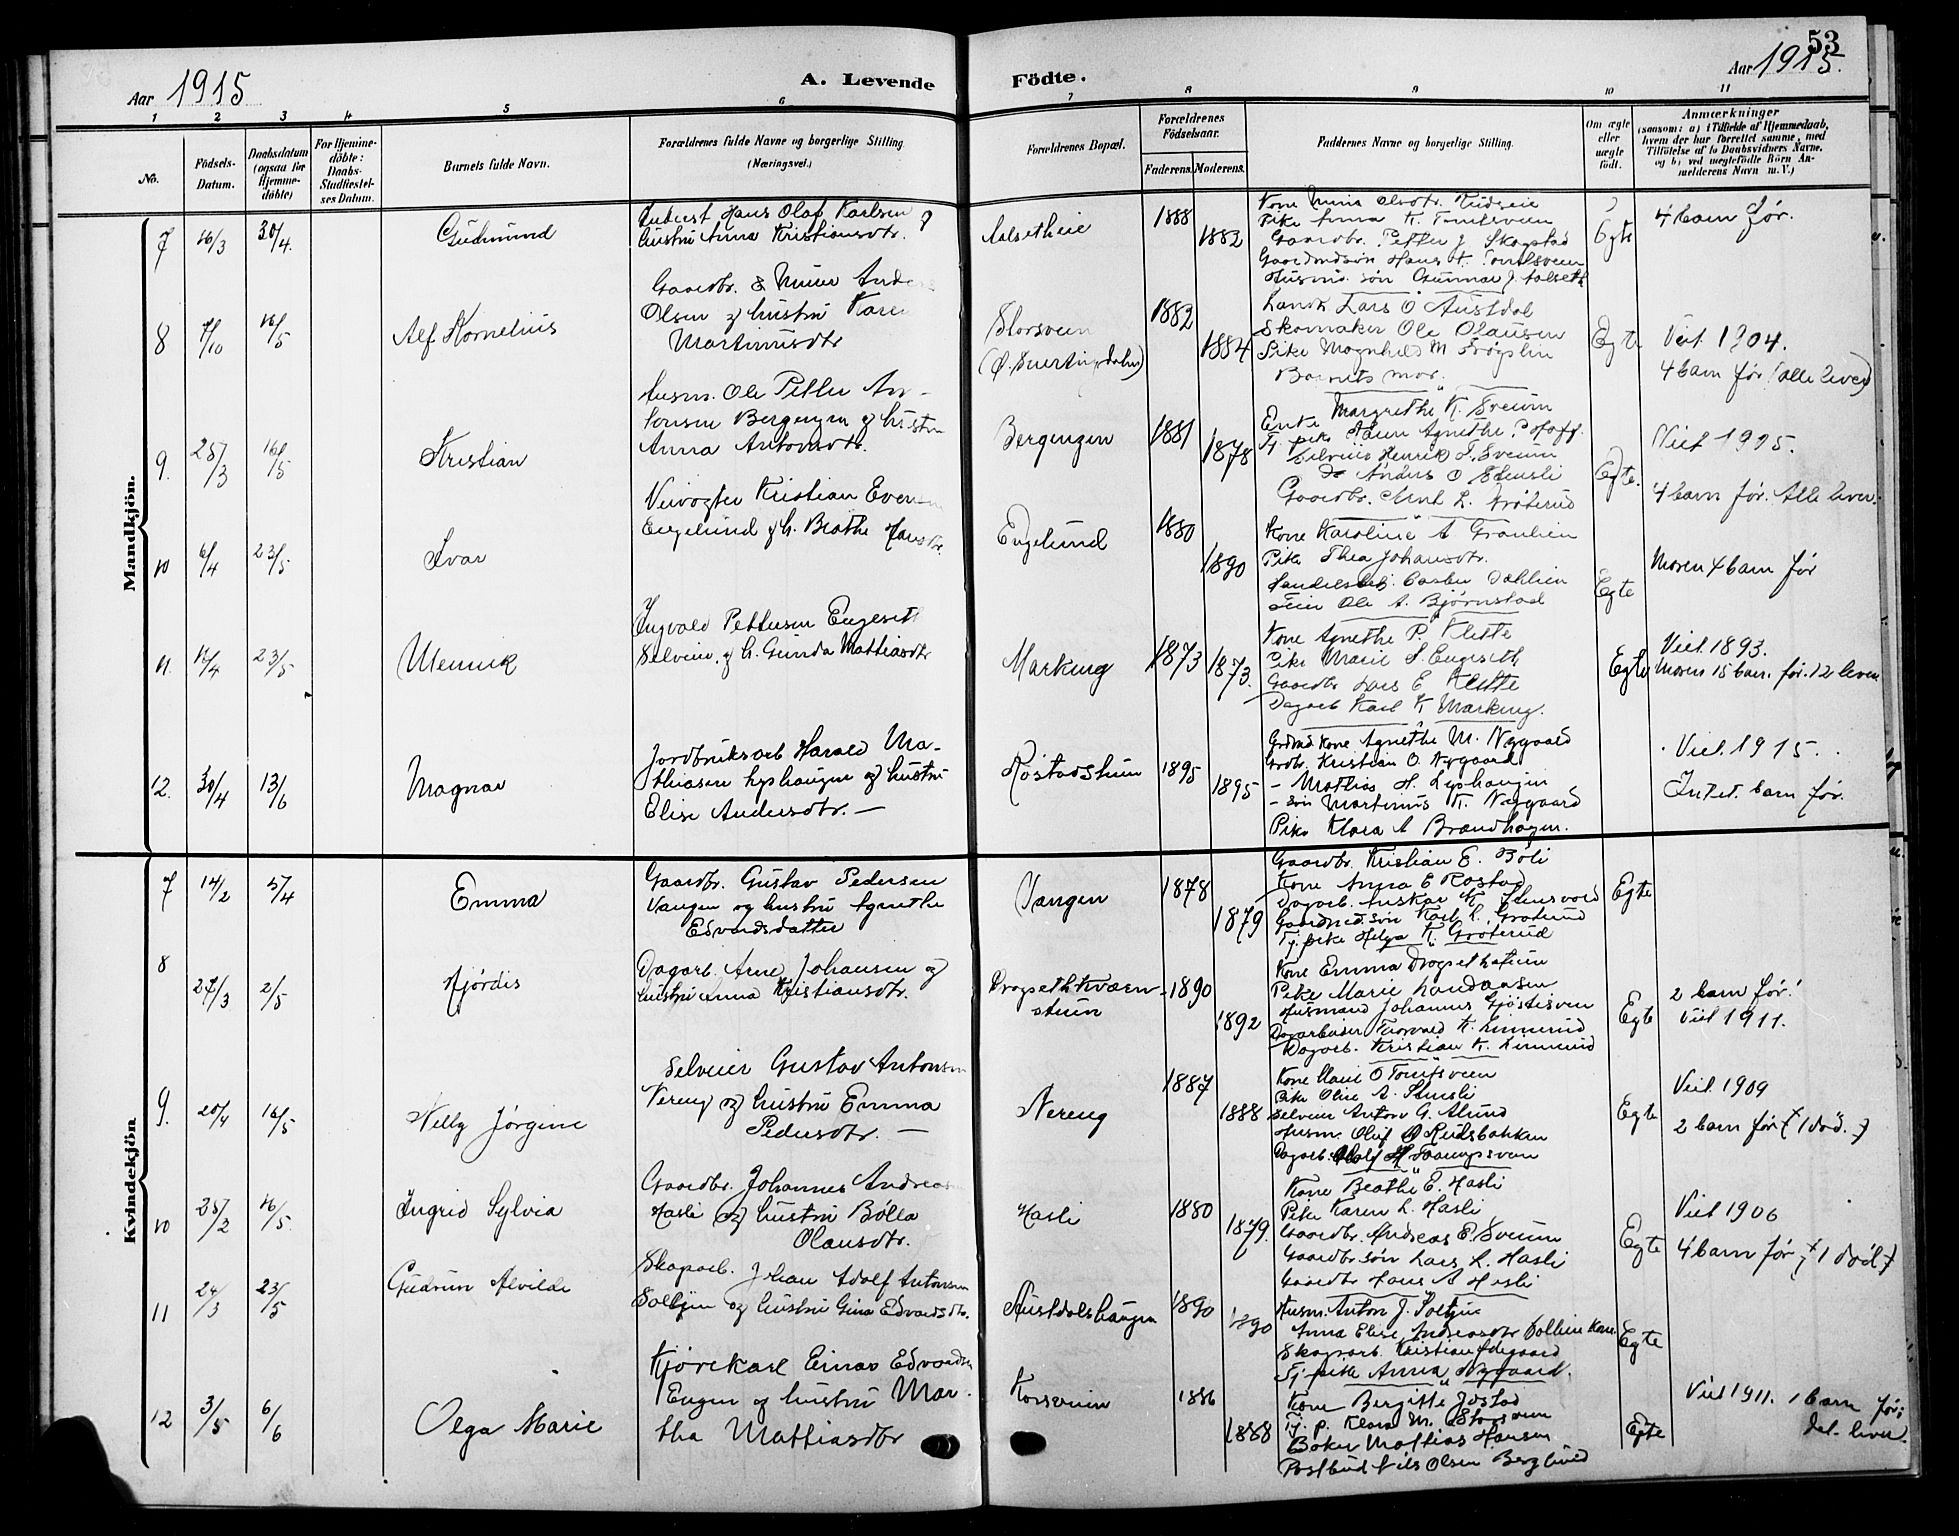 53
Aar 1915
A. Levende
Födte.
Aar 1915.
1 2 3 4 5 6 7 8 9 10 11
No.
Födsels-Datum.
Daabsdatum (ogsaa for Hjemme-döbte)
For Hjemme-döbte: Daabs-Stadfæstel-ses Datum.
Barnets fulde Navn.
Forældrenes fulde Navne og borgerlige Stilling.
(Næringsvei.)
Forældrenes Bopæl.
Forældrenes Födselsaar.
Faderens. Moderens.
Faddernes Navne og borgerlige Stilling.
Om ægte eller uægte födt.
Anmærkninger
(saasom: a) i Tilfælde af Hjemmedaab,
hvem der har forrettet samme, med
Tilföielse af to Daabsvidners Navne,
og b) ved uægtefödte Börn An-
melderens Navn m. V.)
Mandkjön.
7 16/3 30/4 Gudmund
Hans Olaf Karlsen
hustru Anna Kristiansdtr.
Aalsetheie 1888 1882
Pike Anna K. Tomtsveen
Gaardbr. Petter J. Skogstad
Gaardmdsön Hans K. Tomtsveen
Husmd. sön Gunnar J. Aalseth
Egte
4 barn før.
8 16/5 Alf Kornelius
Gaardbr. & Murer
Olsen og hustru Karen
Martinusdtr
Storsveen 1882 1884
Lars O Austdal
Skomaker Ole Olausen
Pike Magnhild M
Barnets mor.
Egte
Viet 1904.
4 barn før (alle lever)
9. 28/3 16/5 Kristian
Husm. Ole Petter An-
tonsen Bergengen og hustru
Anna Antonsdtr.
Bergengen 1881 1878
Enke Margrethe K. Sveum
Selveier Henrik S. Sveum
do Anders O Stensli
Gaardbr.
Egte.
Viet 1905.
4 barn før. Alle lever.
10 6/4 23/5 Ivar
Veivogter Kristian Evensen
Engelund og h. Beathe Hansdtr.
Engelund 1880 1890
Kone Karoline A Granlien
Pike Thea Johansdtr.
Feier Ole A. Bjørnstad
Egte
Moren 4 barn før
11. 12/4 23/5
Ingvald Pettersen Engeseth
Selveier og h. Gunda Mattiasdtr
Markeng 1873 1873.
Kone Agnethe P. Klette
Pike Marie S. Engeseth
Gaardbr Lars E Klette
Dagarb Karl K Markeng.
Egte
Viet 1893.
Moren 15 barn før. 12 lever
12. 30/4 13/6 Magnar
Jordbruksarb Harald Ma-
thiasen Lyshaugen og hustru
Elise Andersdtr. —
Røstadstuen 1895 1895
Kone Agnethe M. Nygaard
Grdbr. Kristian O. Nygaard
- Mathias H. Lyshaugen
- sön Martinus K. Nygaard
Pike Klara A Brændhagen.
Viet 1915.
Intet barn før.
Kvindekjön
7 14/2 5/4 Emma
Gaardbr. Gustav Pedersen
Vangen og hustru Agnethe
Edvardsdatter
Vangen 1878 1879
Gaardbr. Kristian E. Böli
Kone Anna E Røstad
Dagarb. Auskar K. Stensvold
Gaardmd.sön Karl L. Grøterud
Tj. pike Helga K. Grøterud
Egte
8 27/3 2/5 Hjördis
Dagarb. Arne Johansen og
hustru Anna Kristiansdtr.
Drogsethkværn-
stuen 1890 1892
Kone Emma Drogsethstuen
Pike Marie
Husmand Johannes
Dagarbeider Torvald K. Linnerud
Dagarb. Kristian K. Linnerud
Egte
2 barn før!
Viet 1911.
9. 20/4 16/5 Nelly Jørgine
Selveier Gustav Antonsen
Nereng og hustru Emma
Pedersdtr. —
Nereng 1887 1888
Kone Marie O Tomtsveen
Pike Oline A. Stensli
Selveier Anton G. Alund
Husm. Oluf O Rudsbakken
Egte
Viet 1909
2 barn før (1 död.)
10 25/2 16/5 Ingrid Sylvia
Gaardbr. Johannes Andreas
Hasli og hustru Bølla
Olausdtr.
Hasli 1880 1879.
Kone Beathe E. Hasli
Pike Karen L. Hasli
Gaardbr. Andreas E. Sveum
Gaardbr.sön Lars L. Hasli
Gaardbr Hans A Hasli
Egte
Viet 1906
4 barn før, (1 död)
11 24/3 23/5 Gudrun Alvilde
Skogarb. Johan Adolf Antonsen
og hustru Gina Edvardsdtr.
Austdalshaugen 1890 1890
Husm. Anton J.
Anna Elise Andreasdtr
Skogarb. Kristian Ødegaard
Tj. pike Anna Nygaard.
Egte
12 3/5 6/6 Olga Marie
Kjørekarl Einar Edvardsen
Engen og hustru Mar-
tha Mattiasdtr
Korsveien 1886 1888
Kone Bergitte Jøstad
Tj. p. Klara M.
Baker Mattias Hansen
Postbud Nils Olsen Berglund
Egte
Viet 1911. 1 barn før;
det lever.